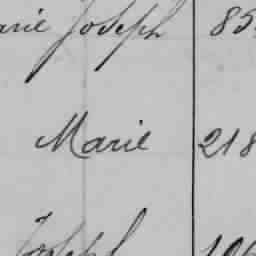 arie Joseph 85
Marie 218
Joseph 106